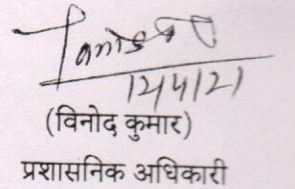 12/4/21
(विनोद कुमार)
प्रशासनिक अधिकारी